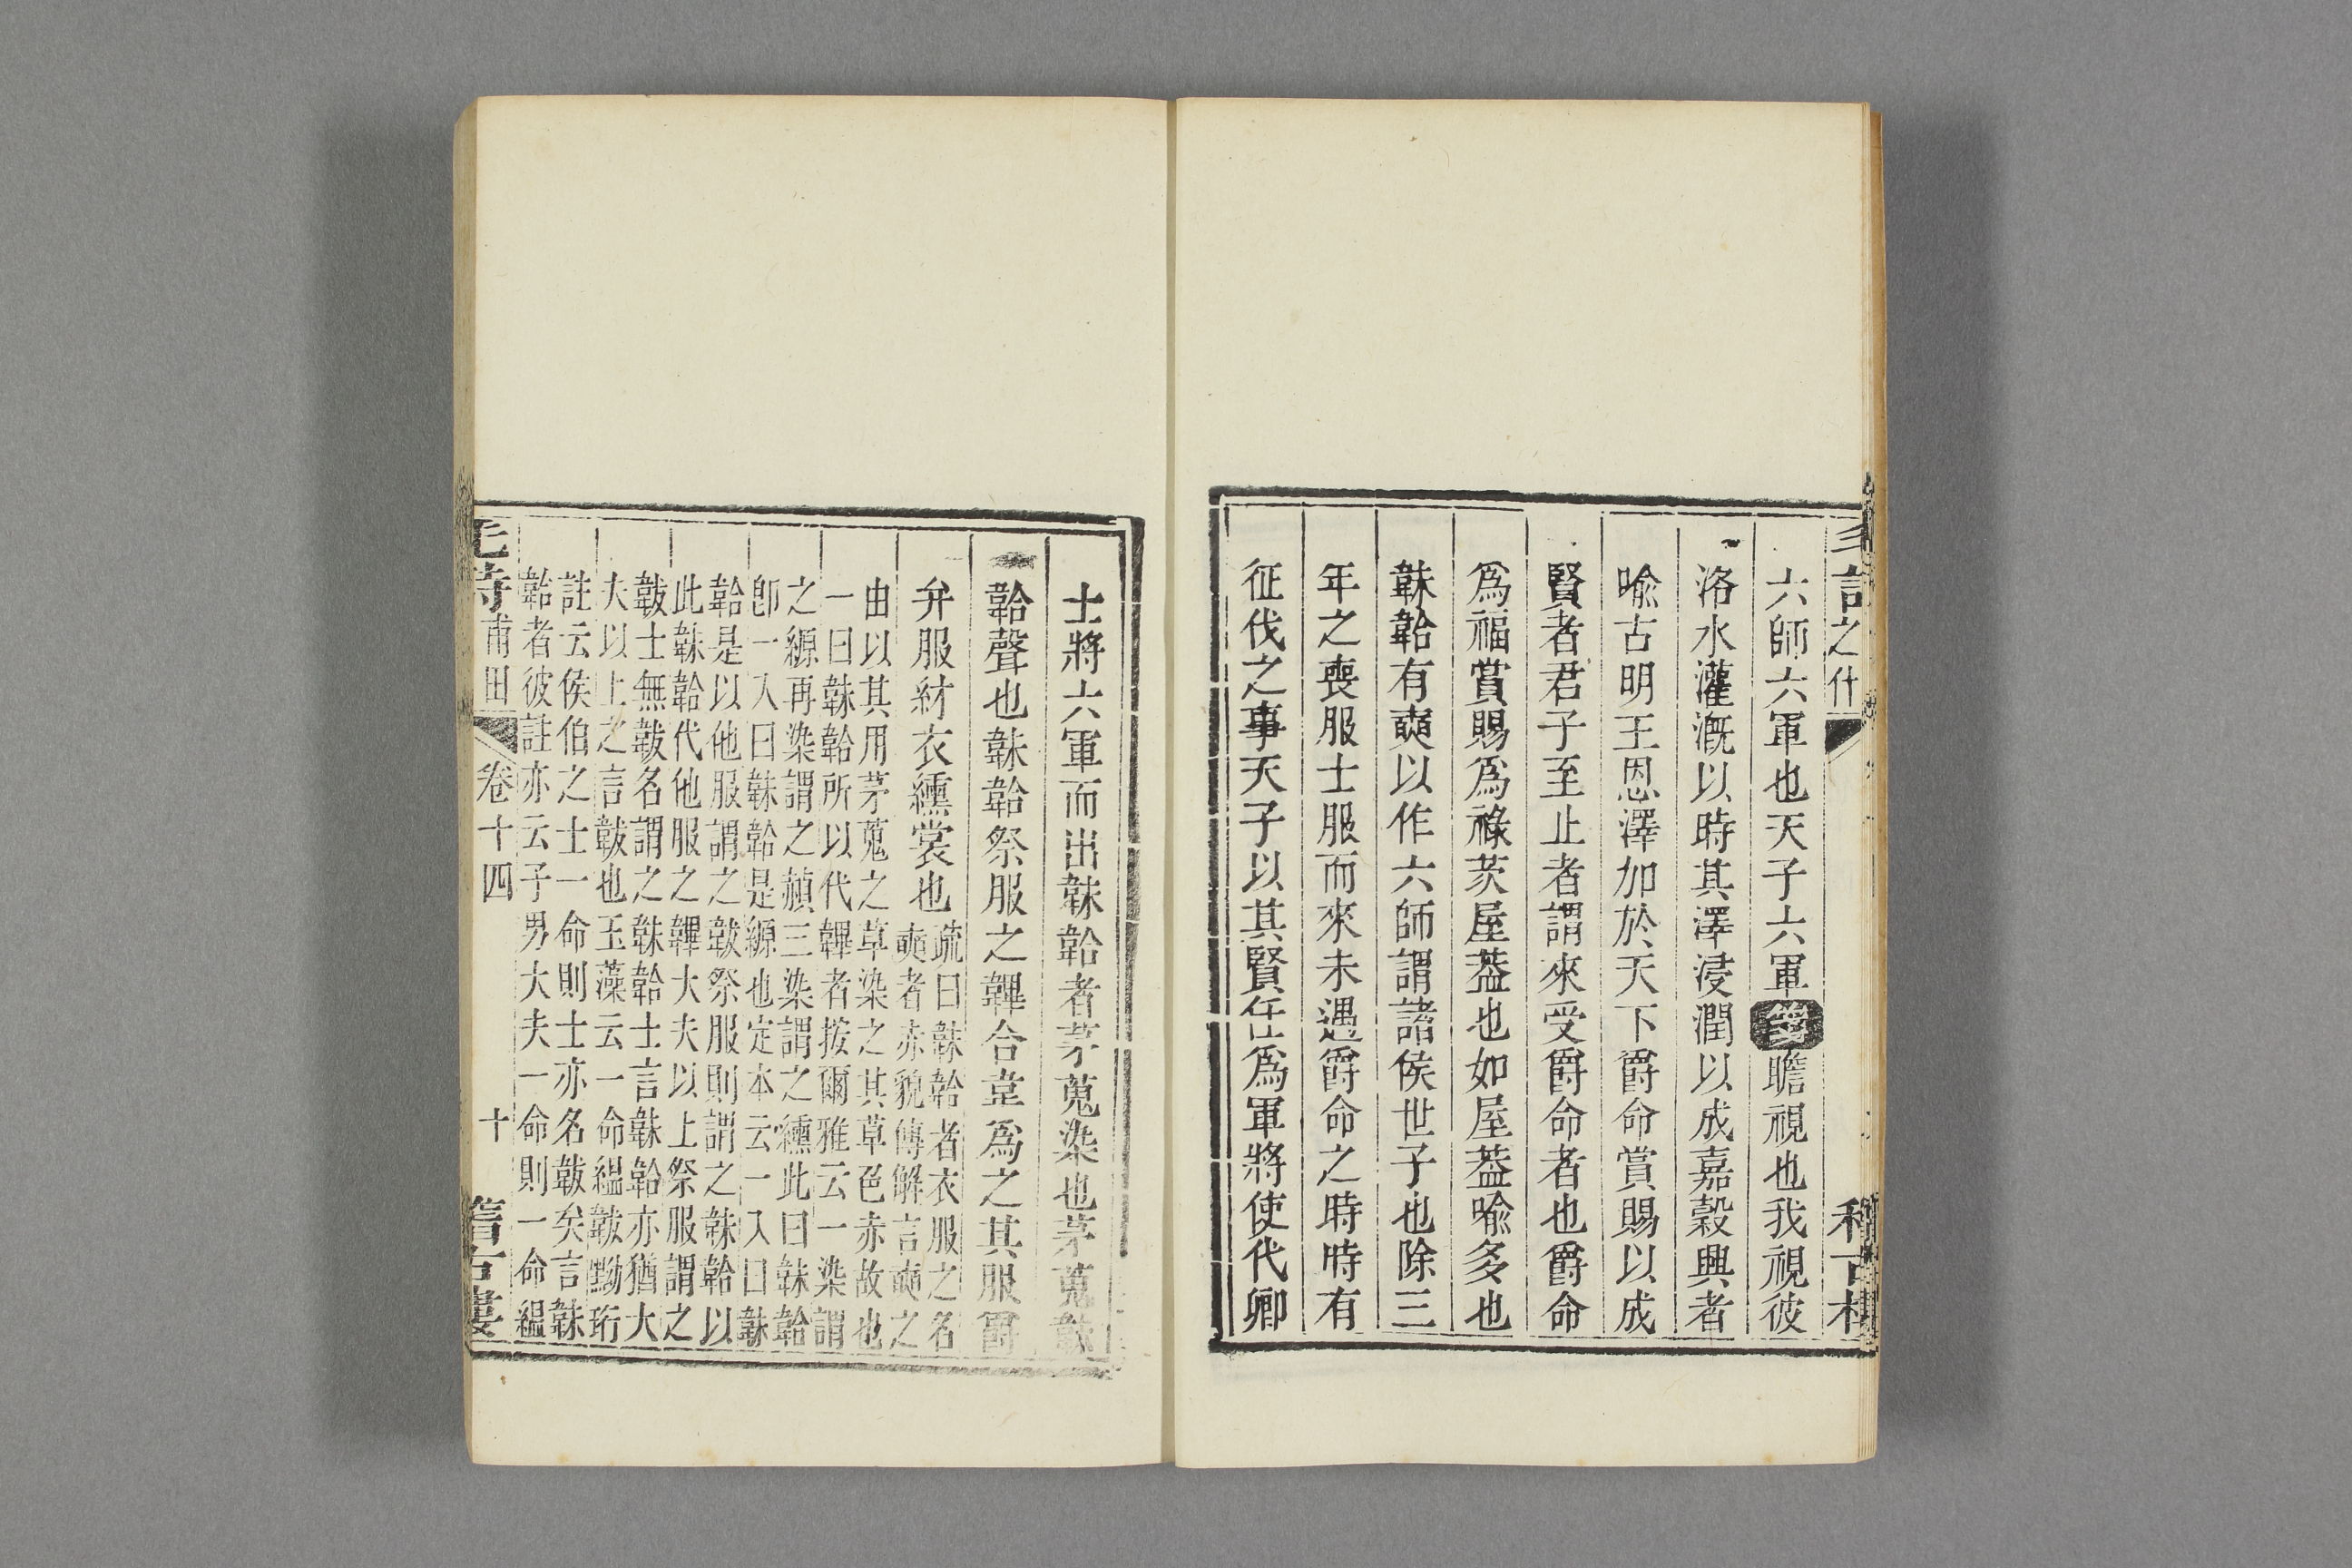 言之什
六師六軍也天子六軍箋瞻視也我視彼
洛水灌漑以時其澤浸潤以成嘉穀興者
喩古明王恩澤加於天下爵命賞賜以成
賢者君子至止者謂來受爵命者也爵命
爲福賞賜爲祿茨屋葢也如屋葢喩多也
韎韐有奭以作六師謂諸侯世子也除三
年之喪服士服而來未遇爵命之時時有
征伐之事天子以其賢任爲軍將使代卿
士將六軍而出韎韐者茅蒐染也茅蒐韎
韐聲也韎韐祭服之韠合韋爲之其服爵
弁服紂衣纁裳也
疏曰韎韐者衣服之名
奭者亦貌傳解言奭之
由以其用茅蒐之草染之其草色赤故也
一曰韎韐所以代韠者按爾雅云一染謂
之縓再染謂之赬三染謂之纁此曰韎韐
卽一入曰韎韐是縓也定本云一入曰韎
韐是以他服謂之韍祭服則謂之韎韐以
此韎韐代他服之韠大夫以上祭服謂之
韍士無韍名謂之韎韐士言韎韐亦猶大
夫以上之言韍也玉藻云一命縕韍黝珩
註云侯伯之士一命則士亦名韍矣言韎
韐者彼註亦云子男大夫一命則一命縕
毛詩甫田 卷十四 十